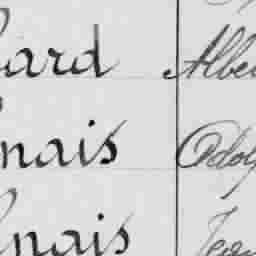 ard Albe
nais Adol
nais Jean